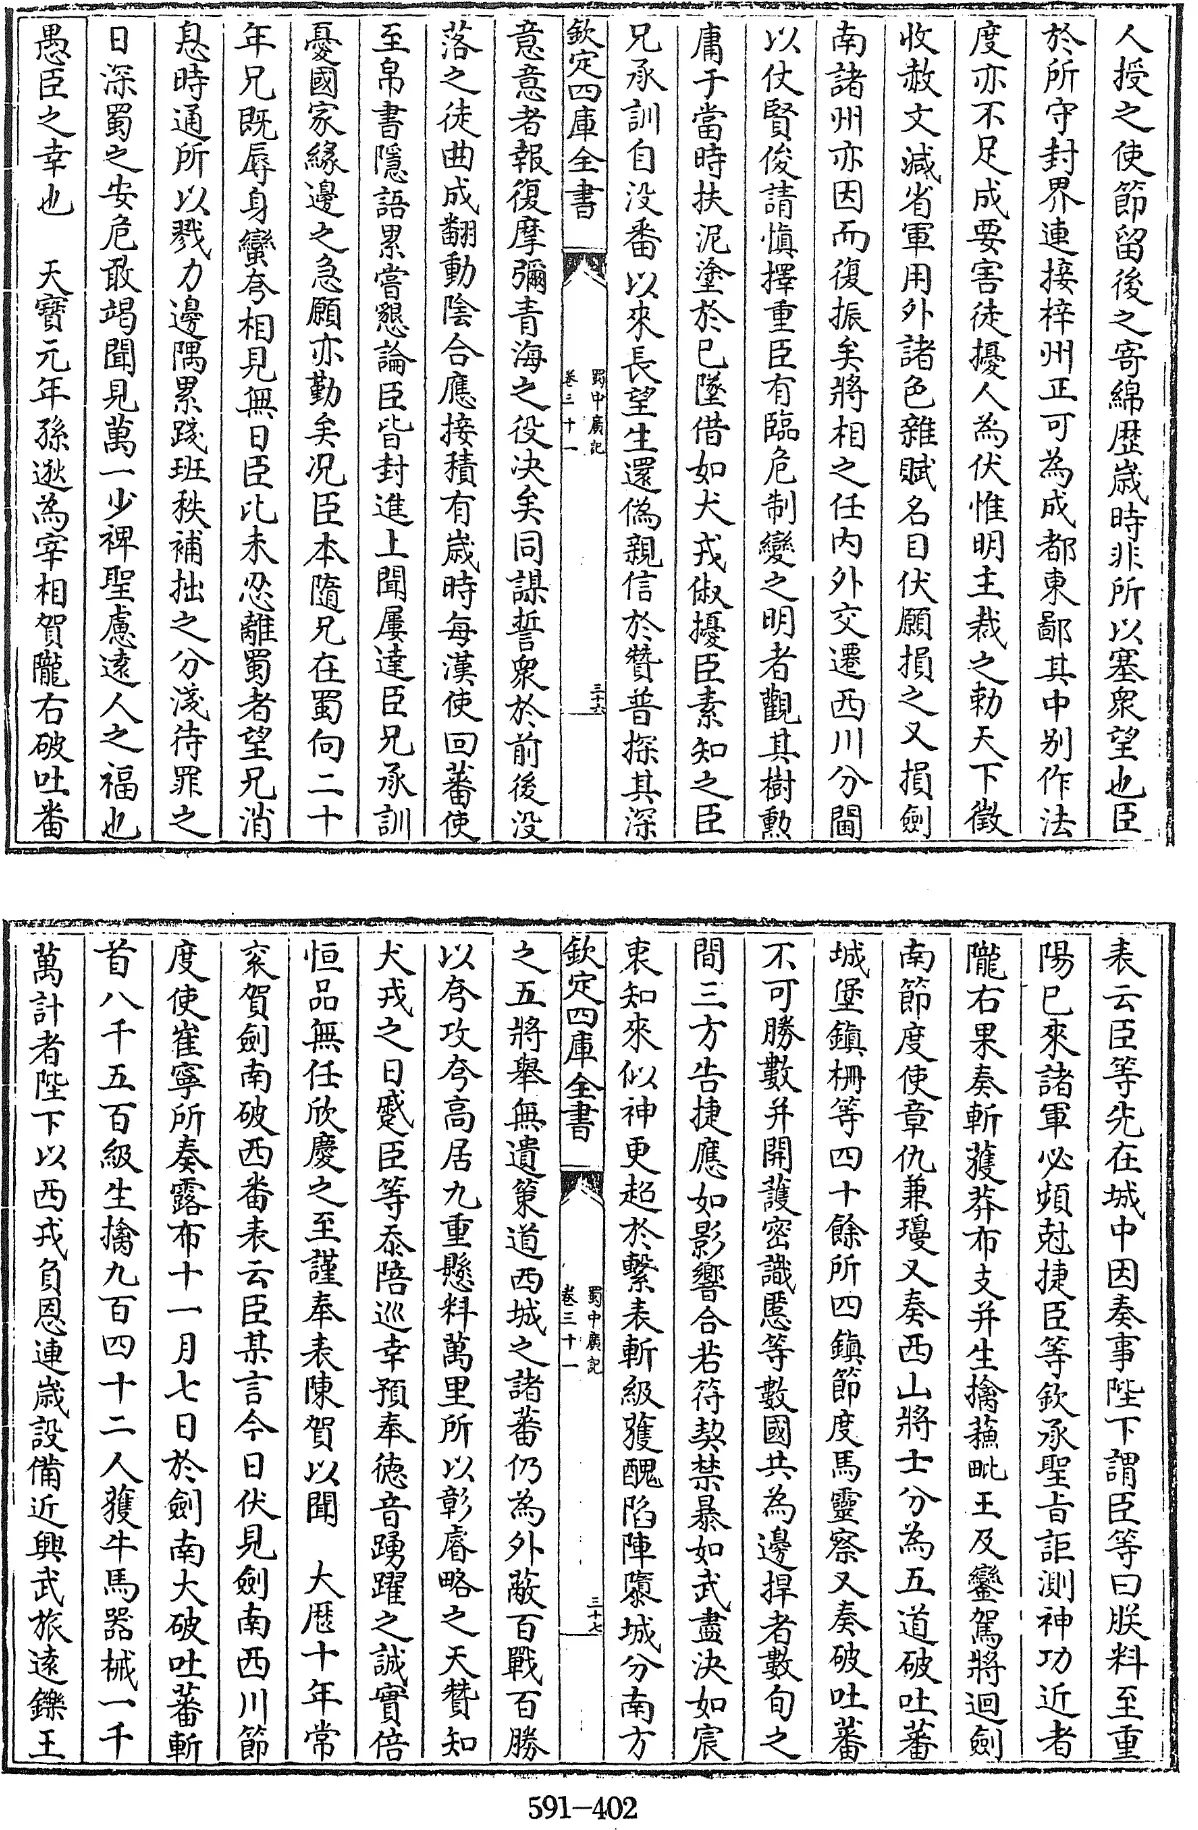 人授之使節留後之寄綿歴嵗時非所以塞衆望也臣
於所守封界連接梓州正可為成都東鄙其中别作法
度亦不足成要害徒擾人為伏惟明主裁之勅天下徵
收赦文減省軍用外諸色雜賦名目伏願損之又損劍
南諸州亦因而復振矣將相之任内外交遷西川分閫
以仗賢俊請慎擇重臣有臨危制變之明者觀其樹勲
庸于當時扶泥塗於已墜借如犬戎俶擾臣素知之臣
兄承訓自没番以來長望生還偽親信於贊普探其深
欽定四庫全書
蜀中廣記
卷三十一
三十六
意意者報復摩彌青海之役决矣同謀誓衆於前後没
落之徒曲成翻動陰合應接積有嵗時每漢使回蕃使
至帛書隱語累嘗懇論臣皆封進上聞屢達臣兄承訓
憂國家緣邊之急願亦勤矣况臣本隨兄在蜀向二十
年兄既辱身蠻夸相見無日臣比未忍離蜀者望兄消
息時通所以戮力邊隅累踐班秩補拙之分淺待罪之
日深蜀之安危敢竭聞見萬一少裨聖慮逺人之福也
愚臣之幸也　天寶元年孫逖為宰相賀隴右破吐番
表云臣等先在城中因奏事陛下謂臣等曰朕料至重
陽已來諸軍必頻尅捷臣等欽承聖㫖詎測神功近者
隴右果奏斬獲莽布支并生擒蘓毗王及鑾駕將迴劍
南節度使章仇兼瓊又奏西山將士分為五道破吐蕃
城堡鎮栅等四十餘所四鎮節度馬靈察又奏破吐蕃
不可勝數并開護密識匿等數國共為邊捍者數旬之
間三方告捷應如影響合若符契禁暴如武盡决如宸
衷知來似神更超於繫表斬級獲醜陷陣隳城分南方
欽定四庫全書
蜀中廣記
卷三十一
三十七
之五將舉無遺策道西城之諸蕃仍為外蔽百戰百勝
以夸攻夸高居九重懸料萬里所以彰睿略之天贊知
犬戎之日蹙臣等忝陪巡幸預奉徳音踴躍之誠實倍
恒品無任欣慶之至謹奉表陳賀以聞　大厯十年常
衮賀劍南破西番表云臣某言今日伏見劍南西川節
度使崔寧所奏露布十一月七日於劍南大破吐蕃斬
首八千五百級生擒九百四十二人獲牛馬器械一千
萬計者陛下以西戎負恩連嵗設備近興武旅逺鑠王
591-402